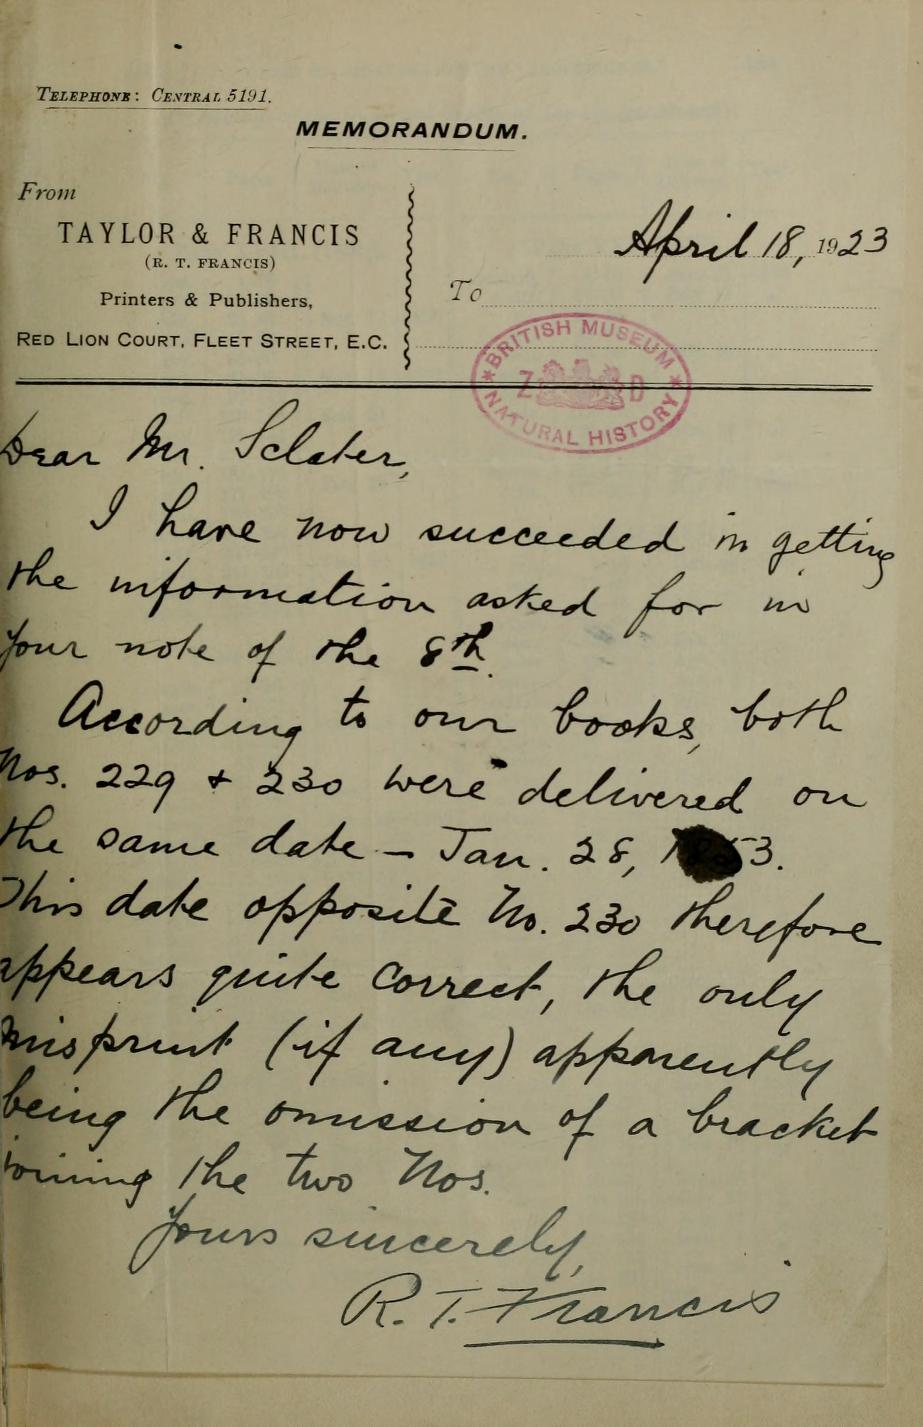 TELEPHONE: CENTRAL 5191.
MEMORANDUM.
From
TAYLOR & FRANCIS
(R. T. FRANCIS)
Printers & Publishers,
RED LION COURT, FLEET STREET, E.C.
April 18, 1923
To
BRITISH MUSEUM
Z D
NATURAL HISTORY
Dear Mr. Sclater,
I have now succeeded in getting
the information asked for in
your note of the 8th.
According to our books, both
Nos. 229 & 230 were delivered on
the same date – Jan. 28, 1853.
This date opposite No. 230 therefore
appears quite correct, the only
misprint (if any) apparently
being the omission of a bracket
joining the two Nos.
Yours sincerely,
R. T. Francis